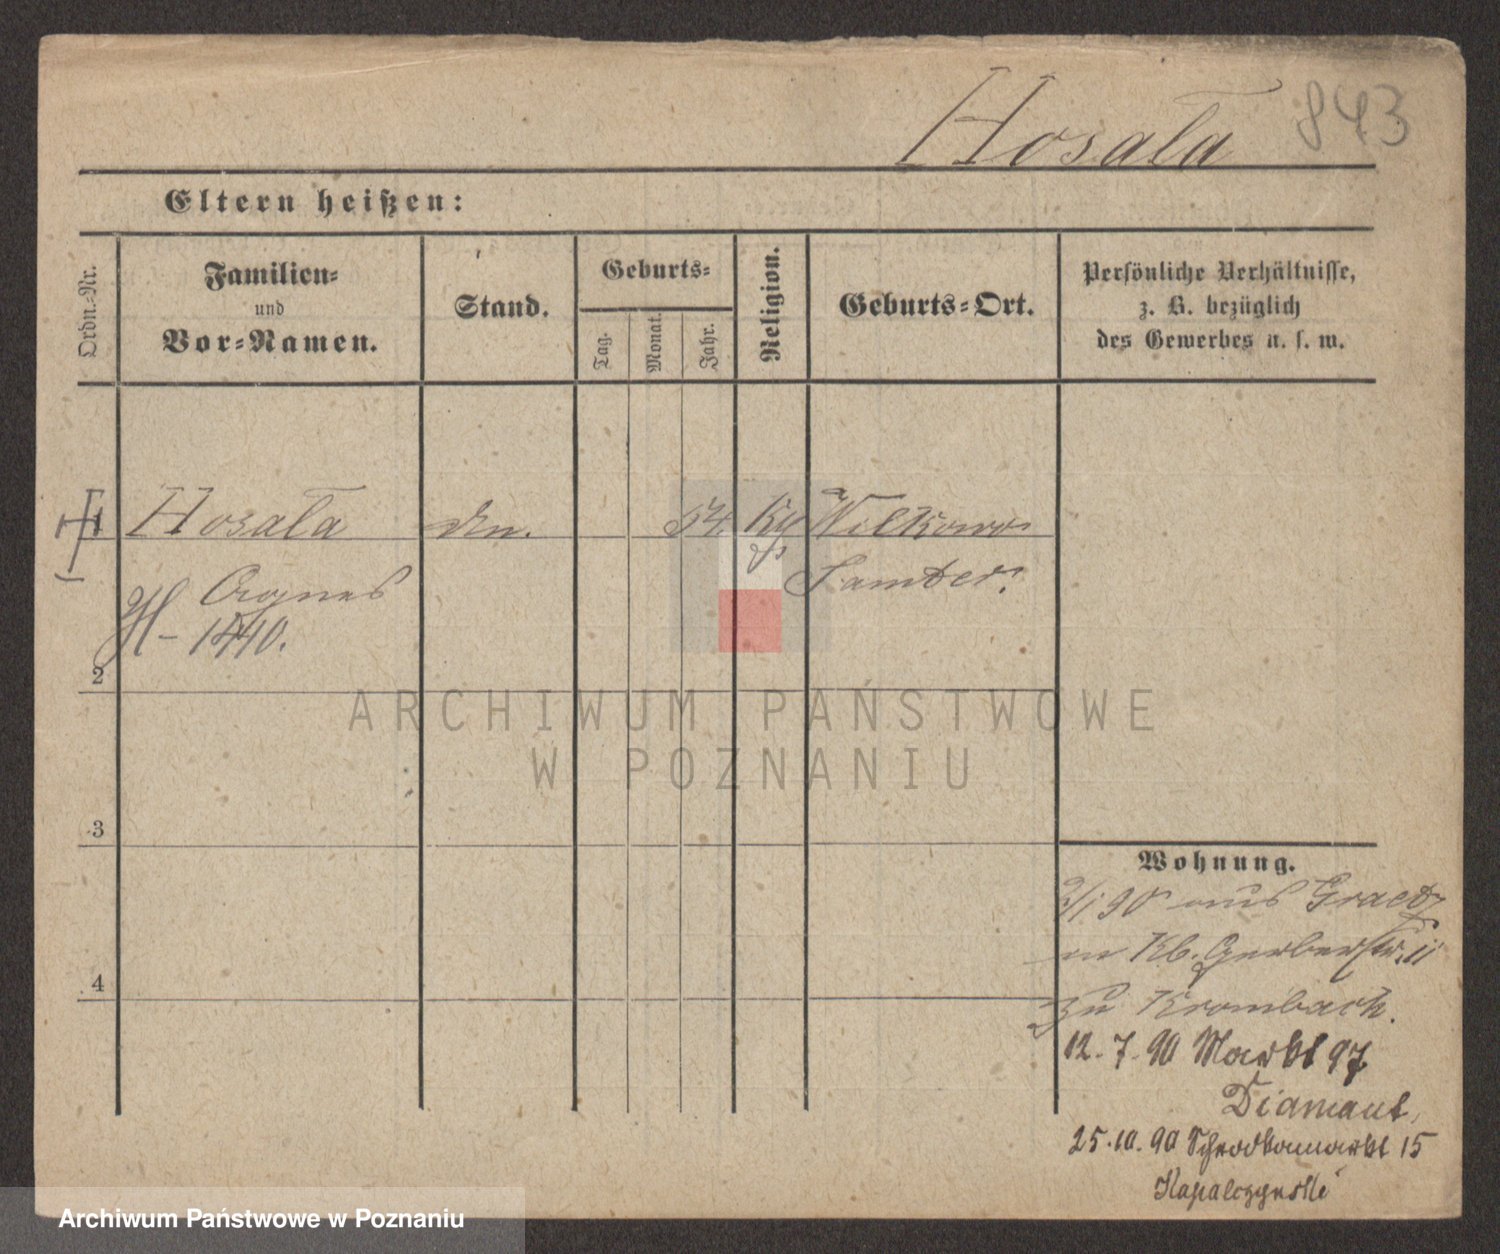 Hosała 843
Eltern heißen:
Ordn.-Nr.
Familien-
und
Vor-Namen.
Stand.
Geburts-
Tag.
Monat.
Jahr.
Religion.
Geburts-Ort.
Persönliche Verhältnisse,
z. B. bezüglich
des Gewerbes u. s. w.
1 Hosała 54. Wilkowo
Agnes Samter.
1440.
2
ARCHIWUM PAŃSTWOWE
W POZNANIU
3
4
Wohnung.
3/1 90 aus Graetz
Gerberstr. 11
zu Krombach.
12.7.90 Markt 97
Diamant,
25.10.90 Schrodkamarkt 15
Kapalczynski
Archiwum Państwowe w Poznaniu